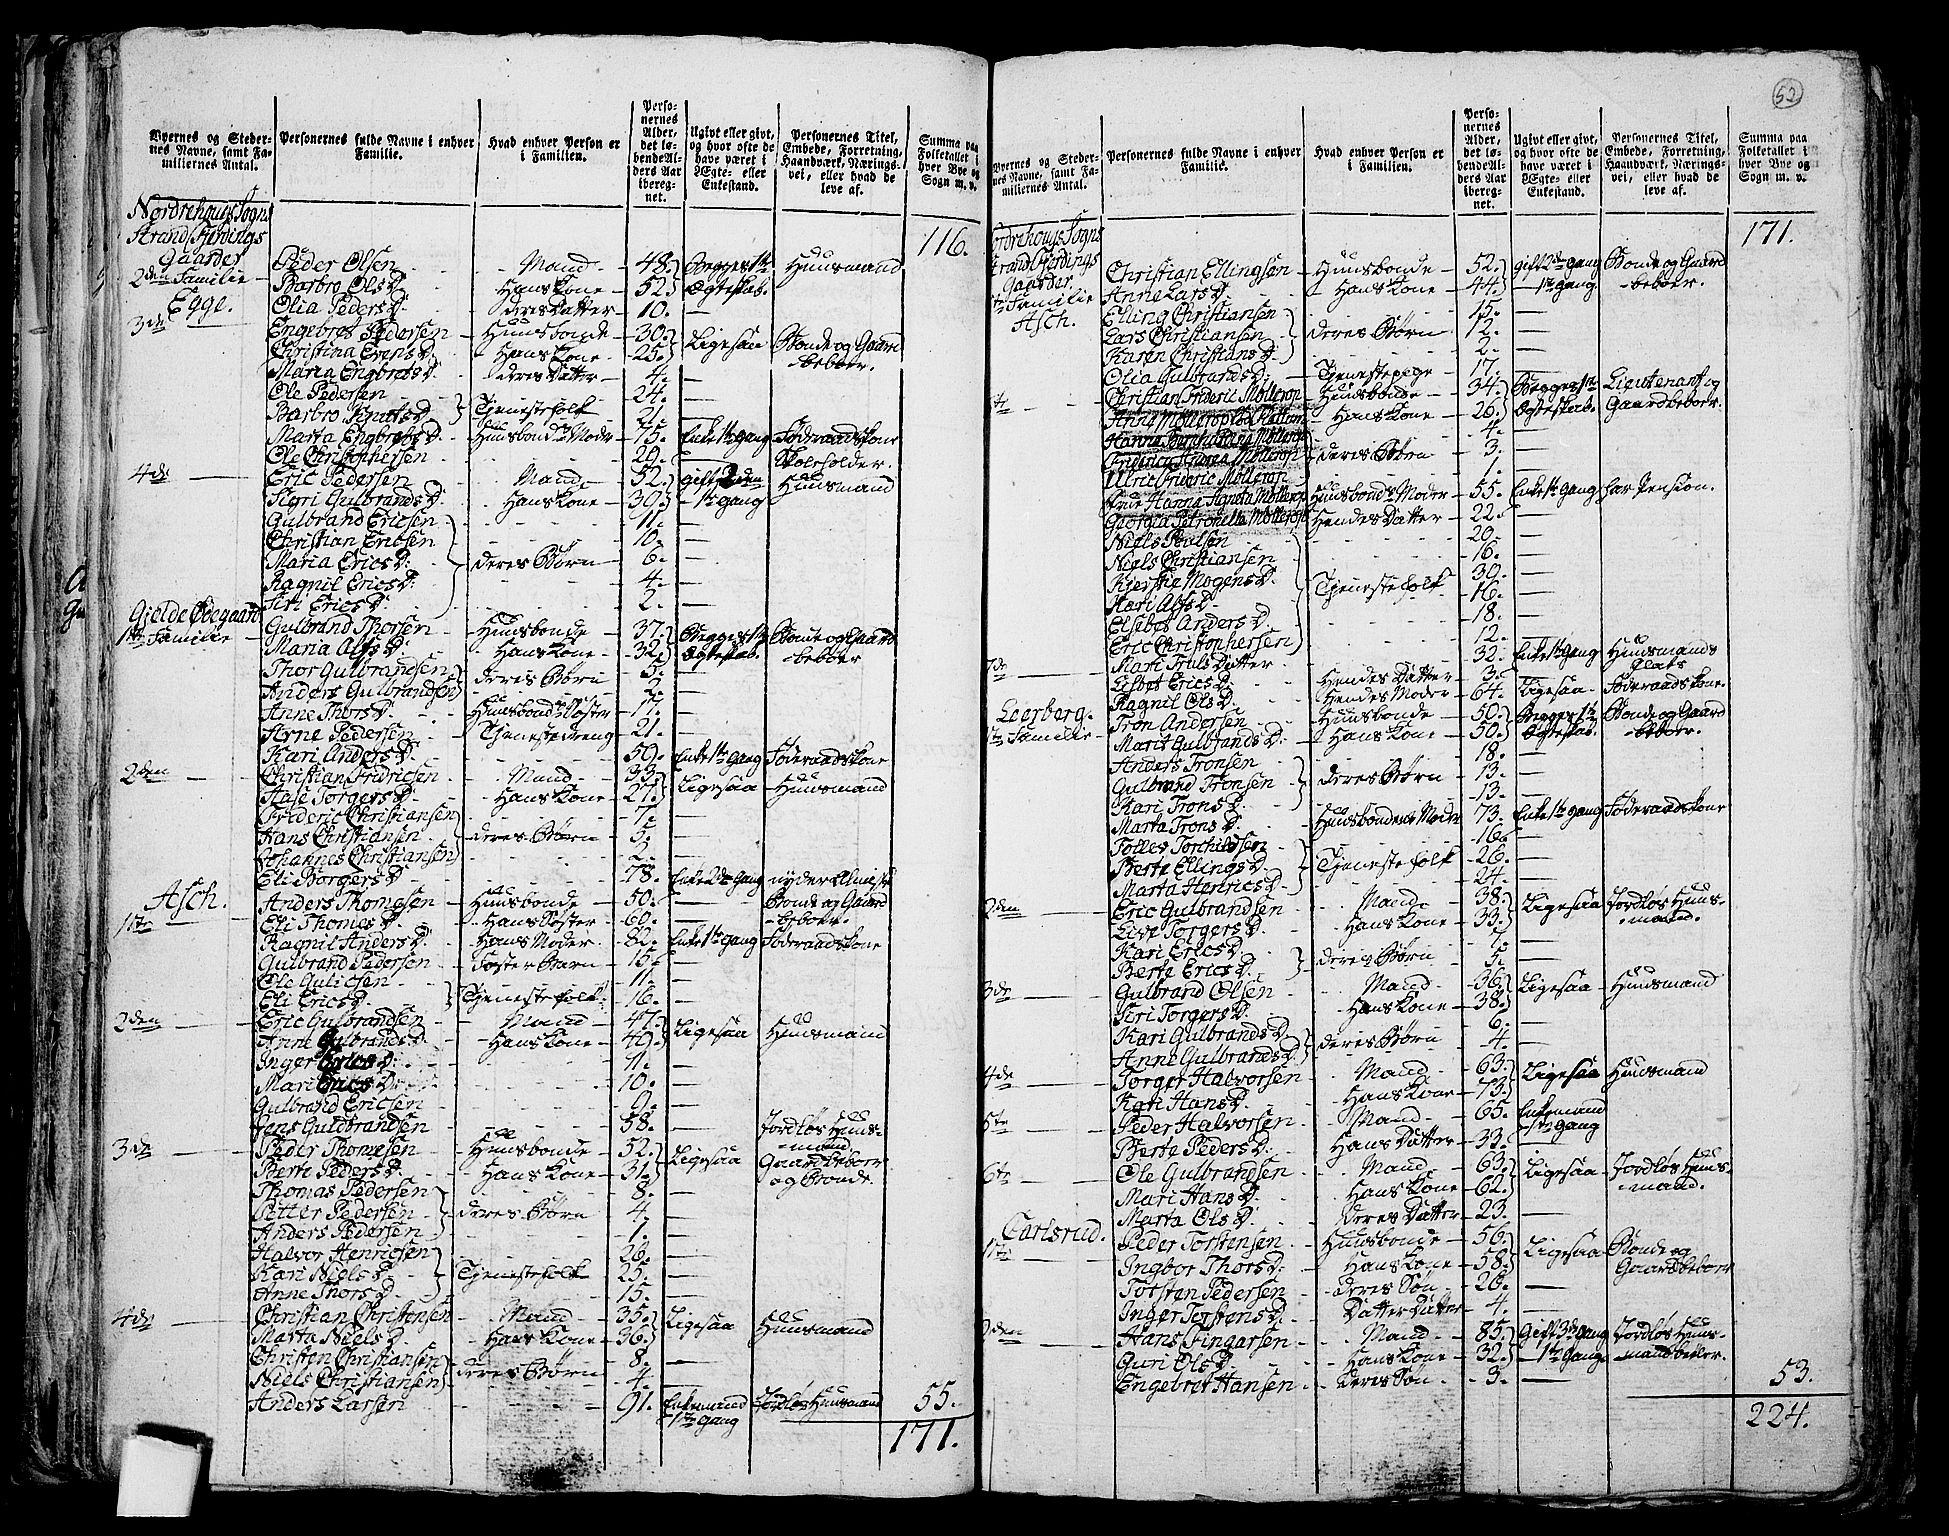 Byernes og Stedernes Navne, samt Familiernes Antal. | Personernes fulde Navne i enhver Familie. | Hvad enhver Person er i Familien. | Personernes Alder, det løbende Alders Aar iberegnet. | Ugivt eller givt, og hvor ofte de have været i Ægte- eller Enkestand. | Personernes Titel, Embede, Forretning, Haandværk, Næringsvei, eller hvad de leve af. | Summa paa Folketallet i hver Bye og Sogn m. v.
Nordrehougs Sogn
Strand fjerdings Gaarder 116.
2den Familie Peder Olsen Mand 48. Begge 1ste Huusmand
Egge. Barbro Ols D. Hans Kone 52. Ægteskab.
Olia Peders D. deres Datter 10. —
3de Engebret Pedersen Huusbonde 30. Ligesaa Bonde og Gaard
Christina Evens D. Hans Kone 25. beboer.
Maria Engbrets D. deres Datter 4. —
Ole Pedersen 24. —
Barbro Knuts D. Tjenestefolk 21. —
Marta Engbrets D. Huusbondens Moder 75. Enke 1ste Gang Føderaadskone
Ole Christophersen 20. — Skoleholder.
4de Eric Pedersen Mand 52. gift 2den Huusmand
Sigri Gulbrands D. Hans Kone 30. 1ste gang
Gulbrand Ericsen 11. —
Christian Ericsen 10. —
Maria Erics D. deres Børn 6. —
Ragnil Erics D. 4. —
Siri Erics D. 2. —
Gjelde Øvegaard
1ste Familie Gulbrand Thorsen Huusbonde 37. Begge 1ste Bonde og Gaard
Maria Alfs D. Hans Kone 32. Ægteskab. beboer
Thor Gulbrandsen 5. —
Anders Gulbrandsen deres Børn 2. —
Anne Thors D. Huusbondens Søster 17. —
Arne Pedersen Tjenestedreng 21. —
Kari Anders D. 59. Enke 1ste Gang Føderaadskone
2den Christian Fridricsen Mand 33. Ligesaa Huusmand
Aase Torgers D. Hans Kone 27.
Frideric Christiansen 7. —
Hans Christiansen deres Børn 5. —
Johannes Christiansen 2. —
Eli Borgers D. 78. Enke 2den Gang nyder Almisse
Asch. Anders Thomesen Huusbonde 50. — Bonde og Gaard
1ste Eli Thomes D. Hans Søster 60. — beboer.
Ragnil Anders D. Hans Moder 82. Enke 1ste Gang Føderaadskone
Gulbrand Pedersen Foster Barn 15. —
Ole Gulicsen 11. —
Eli Erics D. Tjenestefolk 16. —
2den Eric Gulbrandsen Mand 47. Ligesaa Huusmand
Anne Gulbrands D. Hans Kone 49.
Inger Erics D. 11. —
Mari Erics D. 10. —
Gulbrand Ericsen 9. —
Jens Guldbrandsen 58. — Jordløs Huus-
3de Peder Thomesen Huusbonde 52. Ligesaa mand.
Berte Peders D. Hans Kone 31. Gaardbeboer
Thomas Pedersen 8. — og Bonde
Petter Pedersen deres Børn 4. —
Anders Pedersen 1. —
Halvor Henricsen 26. —
Kari Niels D. Tjenestefolk 25. —
Anne Thors D. 15. —
4de Christian Christensen Mand 35. Ligesaa Huusmand
Marta Niels D. Hans Kone 36.
Christen Christiansen 8. —
Niels Christiansen deres Børn 4. —
Anders Larsen 91. Enkemand Jordløs Huusmand 55.
1ste Gang
171.
52
Byernes og Stedernes Navne, samt Familiernes Antal. | Personernes fulde Navne i enhver Familie. | Hvad enhver Person er i Familien. | Personernes Alder, det løbende Alders Aar iberegnet. | Ugivt eller givt, og hvor ofte de have været i Ægte- eller Enkestand. | Personernes Titel, Embede, Forretning, Haandværk, Næringsvei, eller hvad de leve af. | Summa paa Folketallet i hver Bye og Sogn m. v.
Nordrehougs Sogns
Strand fjerdings Gaarder 171.
Familie Christian Ellingsen Huusbonde 52. gift 2den Gang Bonde og Gaard
Asch. Anne Lars D. Hans Kone 44. 1ste gang beboer.
Elling Christiansen 15. —
Lars Christiansen deres Børn 12. —
Karen Christians D. 2. —
Olia Gulbrands D. Tjenestepige 17. —
Christian Frideric Møllerop Huusbonde 34. Begge 1ste Lieutenant og
Anna Møllerop Hans Kone 26. Ægteskab. Gaardbeboer.
Hanna Møllerop 4. —
Andrea Møllerop deres Børn 3. —
Ulric Frideric Møllerop 1. —
Hanna Møllerop Huusbondens Moder 55. Enke 1ste Gang har Pension.
Georgia Petronella Møllerop Hendes Datter 22. —
Niels Poulsen 20. —
Niels Christiansen 16. —
Kjerstie Mogens D. 30. —
Kari Alfs D. Tjenestefolk 16. —
Elsebet Anders D. 18. —
Eric Christophersen 12. —
7de Mari Truls Datter 32. Enke 1ste Gang Huusmands
Lisbet Erics D. Hendes Datter 3. — Plads
Ragnil Ols D. Hendes Moder 64. Ligesaa Føderaadskone
Leerberg. Tron Andersen Huusbonde 50. Begge 1ste Bonde og Gaard
1ste Familie Marit Gulbrands D. Hans Kone 50. Ægteskab. beboer.
Anders Tronsen 18. —
Gulbrand Tronsen deres Børn 13. —
Kari Trons D. 13. —
Marta Trons D. Huusbondens Moder 73. Enke 1ste Gang Føderaadskone
Folles Torchildsen 16. —
Berte Ellings D. Tjenestefolk 26. —
Marta Henrics D. 24. —
2den Eric Gulbrandsen Mand 38. Ligesaa Jordløs Huus-
Live Torgers D. Hans Kone 33. mand.
Kari Erics D. 7. —
Berte Erics D. deres Børn 5. —
3de Gulbrand Olsen Mand 36. Ligesaa Huusmand
Siri Torgers D. Hans Kone 38.
Kari Gulbrands D. 6. —
Anne Gulbrands D. deres Børn 4. —
4de Torger Halvorsen Mand 63. Ligesaa Huusmand
Kari Hans D. Hans Kone 73.
5te Peder Halvorsen Mand 65. Enkemand
Berte Peders D. Hans Datter 33. 1ste Gang
6te Ole Gulbrandsen Mand 63. Ligesaa Jordløs Huus-
Mari Hans D. Hans Kone 62. mand.
Marta Ols D. Deres Datter 23. —
Carlsrud. Peder Torstensen Huusbonde 56. Ligesaa Bonde og
1ste Ingbor Thors D. Hans Kone 58. Gaardbeboer
Torsten Pedersen deres Søn 20. —
Inger Torstens D. Datter Datter 4. —
2den Hans Fingarsen Mand 85. Gift 3de Gang Jordløs Huus-
Guri Ols D. Hans Kone 32. 1ste Gang mandbeboer.
Engebret Hansen Deres Søn 3. — 53.
224.